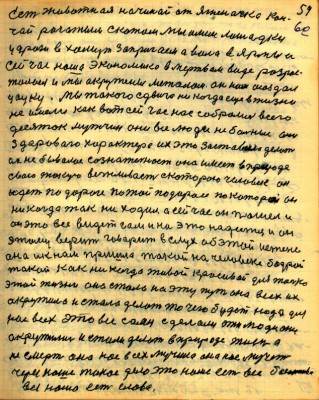 59
60
Есть животная начиная от ягненачка кон-
чая рогатым скотом мы имеем лошадку
ударови в хомут запрягаем а вола в ярмы а
сейчас наша экономика в мертвом виде разрос-
мы окружены металом он нам создал
науку. Мы такого сдвига никогда еще в жизни
не имели как вот сейчас нас собралися всего
десяток мужчин они все люди не больные они
здорового характера их это заставило делать
не бывалое сознательность она имеет в природе
свою такую вежливость с которою человек он
идет по дороге по той подороге по которой он
никогда так не ходил а сейчас он пошел и
он это все видит сам и на это надеется и он
этому верит говорит вслух об этой истене
она к нам пришла такой на человека бодрой
такой как никогда живой красивой для только
этой жизни она стала на эту путь она всех их
окружила и стала делать то чего будет надо для
нас всех это все сами сделали эти люди они
окружили и стали делать в природе жизнь а
не смерть она нас всех мучила она нас мучает
через наше такое дело это наше есть все
все наша есть слова.